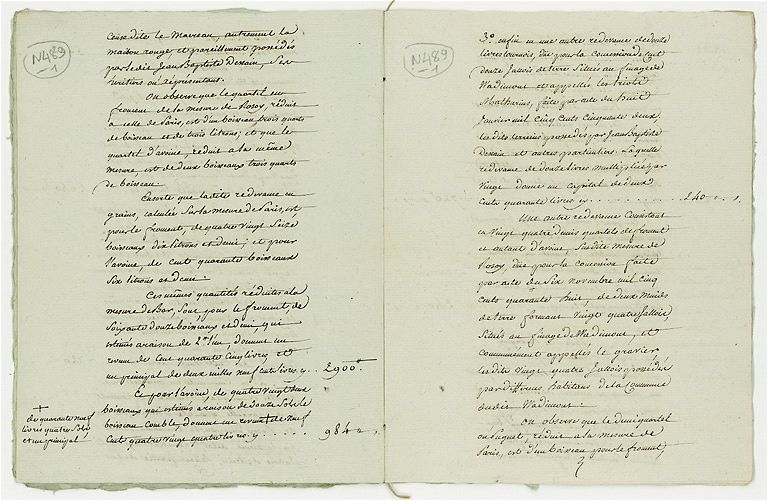 N489
1
Cense dite le Marteau, autrement la
maison rouge et pareillement possédés
par ledit Jean Baptiste Dessain, ses
héritiers ou représentans.
On observe que le quartel en
froment de la mesure de Rosoy, réduit
à celle de Paris, est d'un boisseau trois quarts
de boisseau et de trois litrons; et que le
quartel d'avoine, réduit a la même
mesure est de deux boisseaux trois quarts
de boisseau.
Ensorte que ladite redevance en
grains, calculée sur la mesure de Paris, est
pour le froment, de quatre vingt seize
boisseaux dix litrons et demi; et pour
l'avoine, de cent quarante boisseaux
six litrons et demi.
Ces mêmes quantités réduites a la
mesure de Bar, sont pour le froment, de
soixante douze boisseaux et demi, qui
estimés a raison de 2# l'un, donnent un
revenu de cent quarante cinq livres et
un principal de deux milles neuf cent livres cy .. 2900#
Et pour l'avoine de quatre vingt deux
boisseaux qui estimés a raison de douze sols le
boisseau comble, donnent un revenu + de neuf
cent quatre vingt quatre livres cy ...... 984
+
de quarante neuf
livres quatre sols
et un principal
N489
1
3.° enfin en une autre redevance de douze
livres tournois due pour la concession de huit
douze jallois de terre situés au finage de
Wadimont et appellés les
Mathurins, faite par acte du huit
janvier mil cinq cent cinquante deux
les dits terreins possédés par Jean Baptiste
Dessain et autres particuliers. Laquelle
redevance de douze livres multipliée par
vingt donne un capital de deux
cent quarante livres cy ........ 240
Une autre redevance consistant
en vingt quatre demis quartels de froment
et autant d'avoine, susdite mesure de
Rosoy due pour la concession faite
par acte du six novembre mil cinq
cent quarante huit, de deux muids
de terre formant vingt quatre jallois,
situés au finage de Wadimont, et
communément appellés le gravier
les dits vingt quatre jallois possédés
par différens habitans de la Commune
dudit Wadimont.
On observe que le demi quartel
ou huguet, réduit a la mesure de
Paris, est d'un boisseau pour le froment,